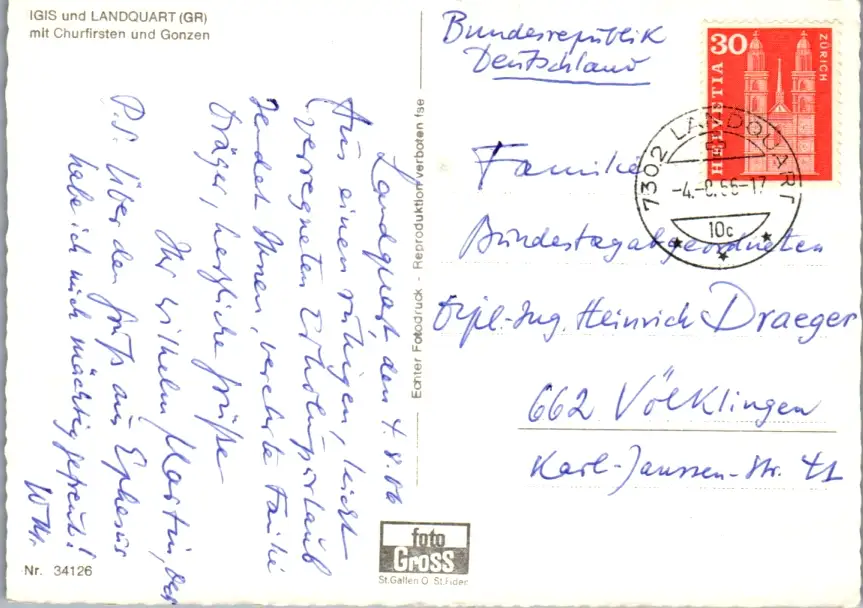 IGIS und LANDQUART (GR)
mit Churfirsten und Gonzen
Landquart, den 4.8.66
Aus einem ruhigen, leicht
verregneten Erholungsurlaub
sendet Ihnen, verehrte Familie
Dräger, herzliche Grüße
Ihr Wilhelm Martin,
P.S. Über den Gruß aus Ephesus
habe ich mich mächtig gefreut!
Nr. 34126
Echter Fotodruck - Reproduktion verboten
foto
Gross
St.Gallen O. St.Fiden
Bundesrepublik
Deutschland
30
HELVETIA
ZÜRICH
7302 LANDQUART
-4.-8.66-17
10c
Familie
Bundestagabgeordneten
Dipl.-Ing. Heinrich Draeger
662 Völklingen
Karl-Janssen-Str. 41